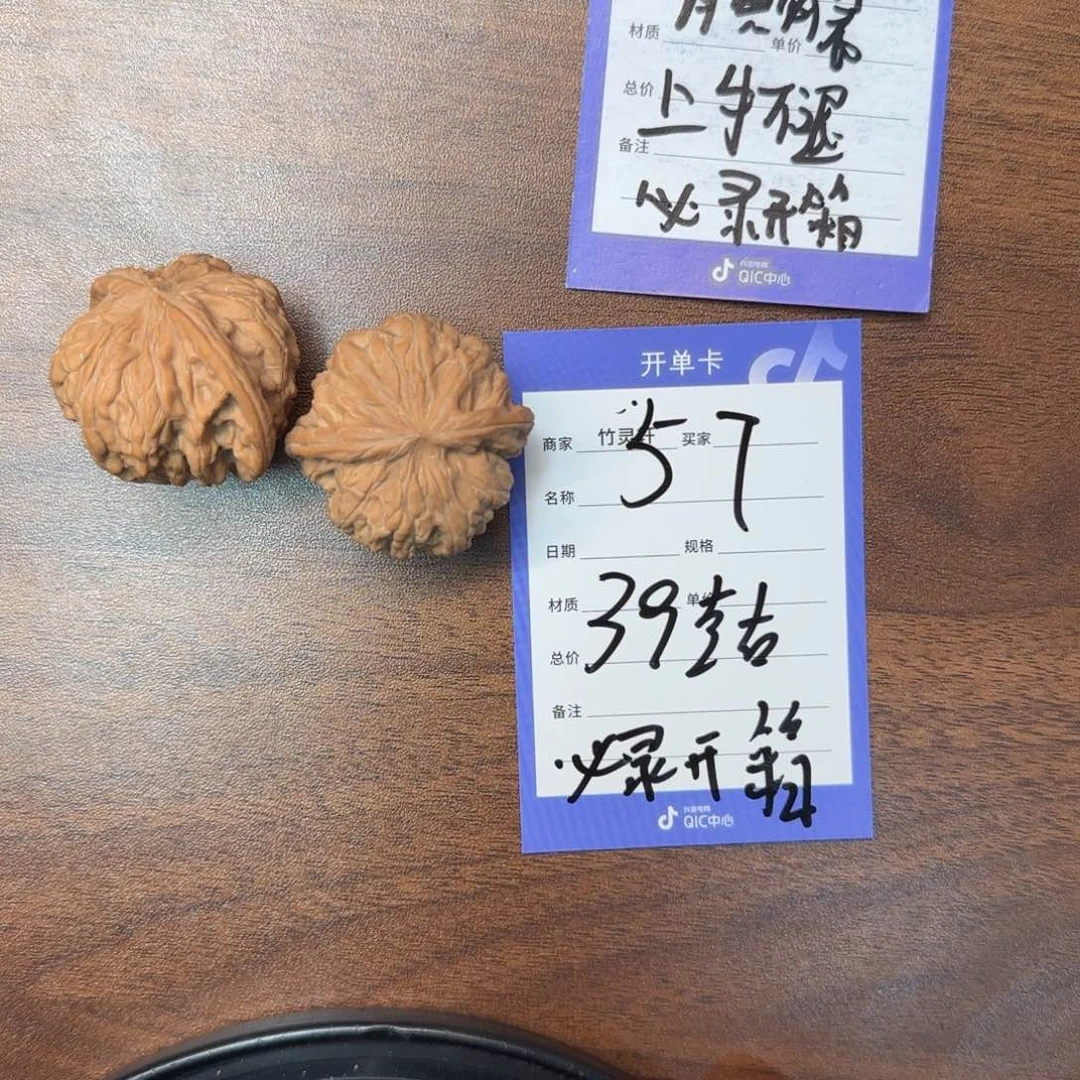 材质 单价
总价 上手不退
备注
必录开箱
抖音电商
QIC中心
开单卡
商家 竹灵轩 买家
57
名称
日期 规格
材质 单价
39
总价
备注
必录开箱
抖音电商
QIC中心